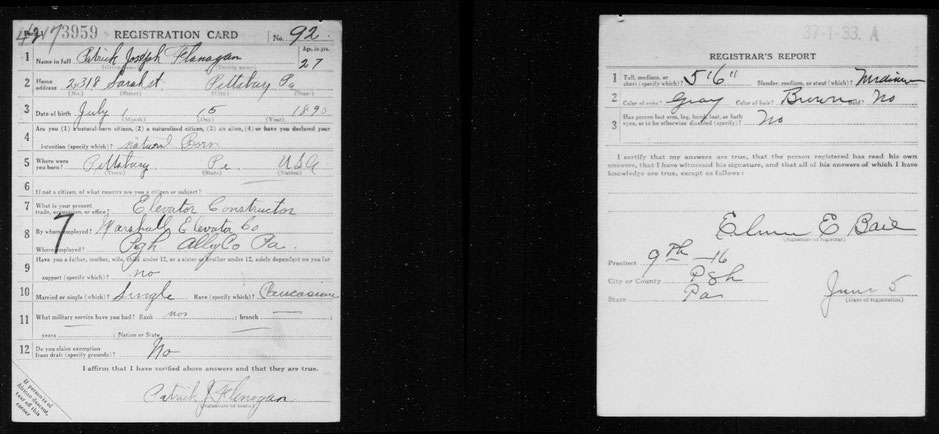 Form 1 3959 REGISTRATION CARD No. 92
1 Name in full Patrick Joseph Flanagan Age, in yrs. 27
(Given name) (Family name)
2 Home address 2318 Sarah st Pittsburg Pa
(No.) (Street) (City) (State)
3 Date of birth July 15 1890
(Month) (Day) (Year)
4 Are you (1) a natural-born citizen, (2) a naturalized citizen, (3) an alien, (4) or have you declared your
intention (specify which)? natural Born
5 Where were you born? Pittsburg Pa USA
(Town) (State) (Nation)
6 If not a citizen, of what country are you a citizen or subject?
7 What is your present trade, occupation, or office? Elevator Constructor
8 By whom employed? Marshall Elevator Co
Where employed? Pgh Ally Co Pa.
9 Have you a father, mother, wife, child under 12, or a sister or brother under 12, solely dependent on you for
support (specify which)? no
10 Married or single (which)? Single Race (specify which)? Caucasian
11 What military service have you had? Rank ; branch
years ; Nation or State
12 Do you claim exemption from draft (specify grounds)? No
I affirm that I have verified above answers and that they are true.
Patrick J. Flanagan
(Signature or mark)
If person is of
African descent,
tear off this
corner
37-1-33. A
REGISTRAR'S REPORT
1 Tall, medium, or short (specify which)? 5'6" Slender, medium, or stout (which)? Medium
2 Color of eyes? Gray Color of hair? Brown Bald? No
3 Has person lost arm, leg, hand, foot, or both
eyes, or is he otherwise disabled (specify)? No
I certify that my answers are true, that the person registered has read his own
answers, that I have witnessed his signature, and that all of his answers of which I have
knowledge are true, except as follows:
Elmer E
(Signature of registrar)
Precinct 9th - 16
City or County Pgh
State Pa
June 5
(Date of registration)